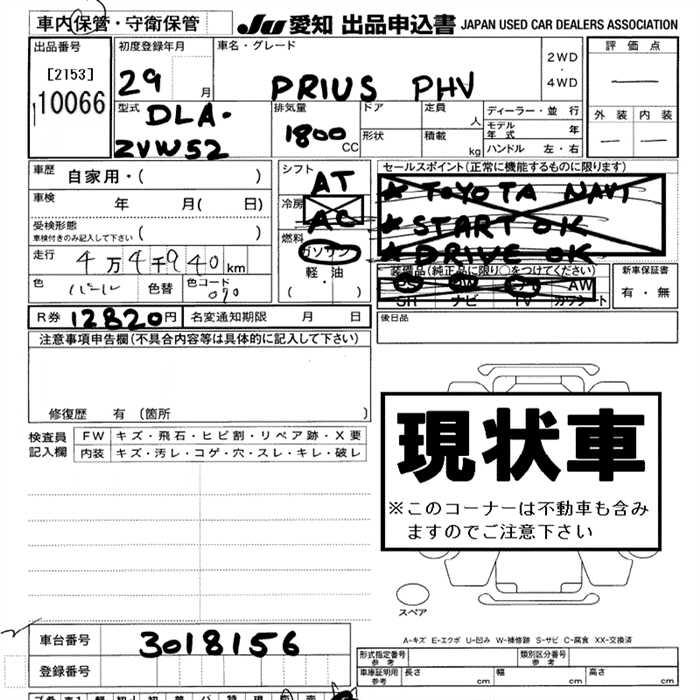 車内保管・守衛保管
JU 愛知 出品申込書 JAPAN USED CAR DEALERS ASSOCIATION
出品番号
[2153]
10066
初度登録年月
29 月
車名・グレード
PRIUS PHV
2WD
・
4WD
評価点
外装 内装
型式
DLA-
ZVW52
排気量
1800 CC
ドア
形状
定員 人
積載 kg
ディーラー・並 行
モデル年式 年
ハンドル 左・右
車歴 自家用・( )
車検 年 月( 日)
受検形態
車検付きのみ記入して下さい ( )
走行 4万4千940km
色 パール 色替 色コード 070
シフト
AT
冷房
AC
燃料
ガソリン
・
軽・油
( ・ )
セールスポイント(正常に機能するものに限ります)
★ TOYOTA NAVI
★ START OK
★ DRIVE OK
装備品(純正品に限り○をつけてください)
AW
SH ナビ TV カワシート
新車保証書
有・無
R券 12820円 名変通知期限 月 日
後日品
注意事項申告欄(不具合内容等は具体的に記入して下さい)
修復歴 有 (箇所 )
検査員
記入欄
FW キズ・飛石・ヒビ割・リペア跡・X要
内装 キズ・汚レ・コゲ・穴・スレ・キレ・破レ
現状車
※このコーナーは不動車も含み
ますのでご注意下さい
スペア
A-キズ E-エクボ U-凹み W-補修跡 S-サビ C-腐食 XX-交換済
車台番号 3018156
登録番号
形式指定番号
参考
類別区分番号
参考
車庫証明用
参考
長さ cm 幅 cm 高さ cm